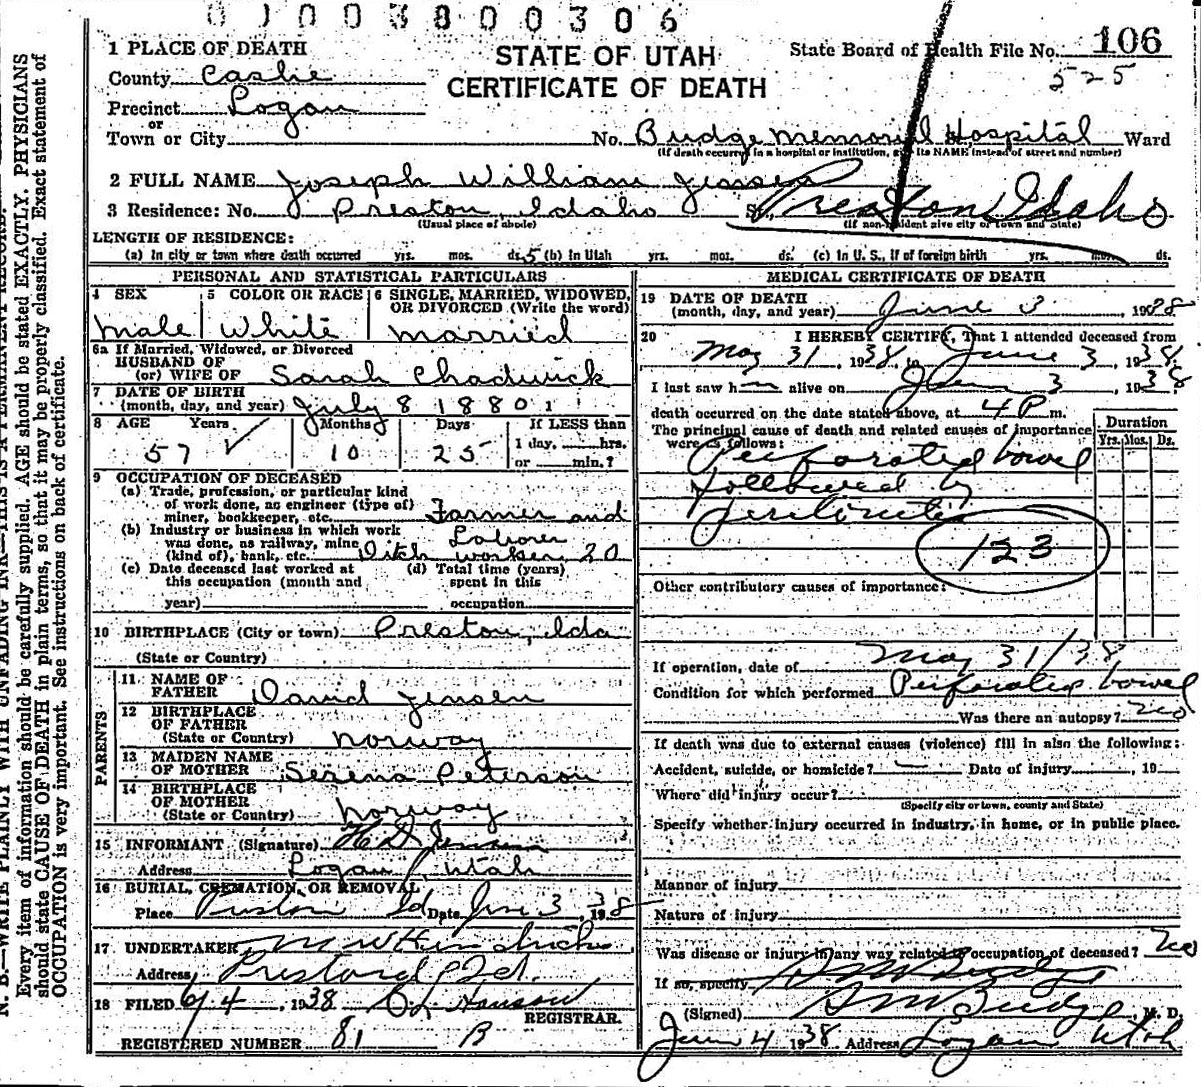 01003800306
1 PLACE OF DEATH
STATE OF UTAH
CERTIFICATE OF DEATH
State Board of Health File No. 106
525
County Cache
Precinct Logan
or
Town or City
No. Budge Memorial Hospital Ward
(If death occurred in a hospital or institution, give its NAME instead of street and number)
2 FULL NAME Joseph William Jensen
3 Residence: No. Preston, Idaho St., Preston Idaho
(Usual place of abode) (If non-resident give city or town and State)
LENGTH OF RESIDENCE:
(a) In city or town where death occurred yrs. mos. ds. 5 (b) In Utah yrs. mos. ds. (c) In U. S., if of foreign birth yrs. mos. ds.
PERSONAL AND STATISTICAL PARTICULARS
4 SEX 5 COLOR OR RACE 6 SINGLE, MARRIED, WIDOWED, OR DIVORCED (Write the word)
Male White Married
6a If Married, Widowed, or Divorced
HUSBAND OF
(or) WIFE OF Sarah Chadwick
7 DATE OF BIRTH
(month, day, and year) July 8 1880
8 AGE Years Months Days If LESS than
57 10 25 1 day, hrs.
or min.?
9 OCCUPATION OF DECEASED
(a) Trade, profession, or particular kind
of work done, as engineer (type of)
miner, bookkeeper, etc. Farmer and
Laborer
(b) Industry or business in which work
was done, as railway, mine
(kind of), bank, etc. Ditch worker 20
(c) Date deceased last worked at
this occupation (month and
year)
(d) Total time (years)
spent in this
occupation
10 BIRTHPLACE (City or town) Preston, Ida
(State or Country)
PARENTS
11 NAME OF
FATHER David Jensen
12 BIRTHPLACE
OF FATHER
(State or Country) Norway
13 MAIDEN NAME
OF MOTHER Serena Peterson
14 BIRTHPLACE
OF MOTHER
(State or Country) Norway
15 INFORMANT (Signature) Jensen
Address Logan, Utah
16 BURIAL, CREMATION, OR REMOVAL
Place Preston Id Date June 3, 1938
17 UNDERTAKER
Address Preston Id.
18 FILED 6/4, 1938 Hanson
REGISTRAR.
REGISTERED NUMBER 81 B
MEDICAL CERTIFICATE OF DEATH
19 DATE OF DEATH
(month, day, and year) June 3, 1938
20 I HEREBY CERTIFY, That I attended deceased from
May 31, 1938, to June 3, 1938
I last saw h alive on June 3, 1938
death occurred on the date stated above, at 4 P m.
The principal cause of death and related causes of importance
were as follows:
Duration
Yrs. Mos. Ds.
Perforated bowel
followed by
peritonitis
123
Other contributory causes of importance:
If operation, date of May 31/38
Condition for which performed Perforated bowel
Was there an autopsy? no
If death was due to external causes (violence) fill in also the following:
Accident, suicide, or homicide? Date of injury, 19
Where did injury occur?
(Specify city or town, county and State)
Specify whether injury occurred in industry, in home, or in public place.
Manner of injury
Nature of injury
Was disease or injury in any way related to occupation of deceased? no
If so, specify
(Signed) Budge, M. D.
June 4 1938 Address Logan Utah
N. B.—WRITE PLAINLY WITH UNFADING INK—THIS IS A PERMANENT RECORD.
Every item of information should be carefully supplied. AGE should be stated EXACTLY. PHYSICIANS
should state CAUSE OF DEATH in plain terms, so that it may be properly classified. Exact statement of
OCCUPATION is very important. See instructions on back of certificate.